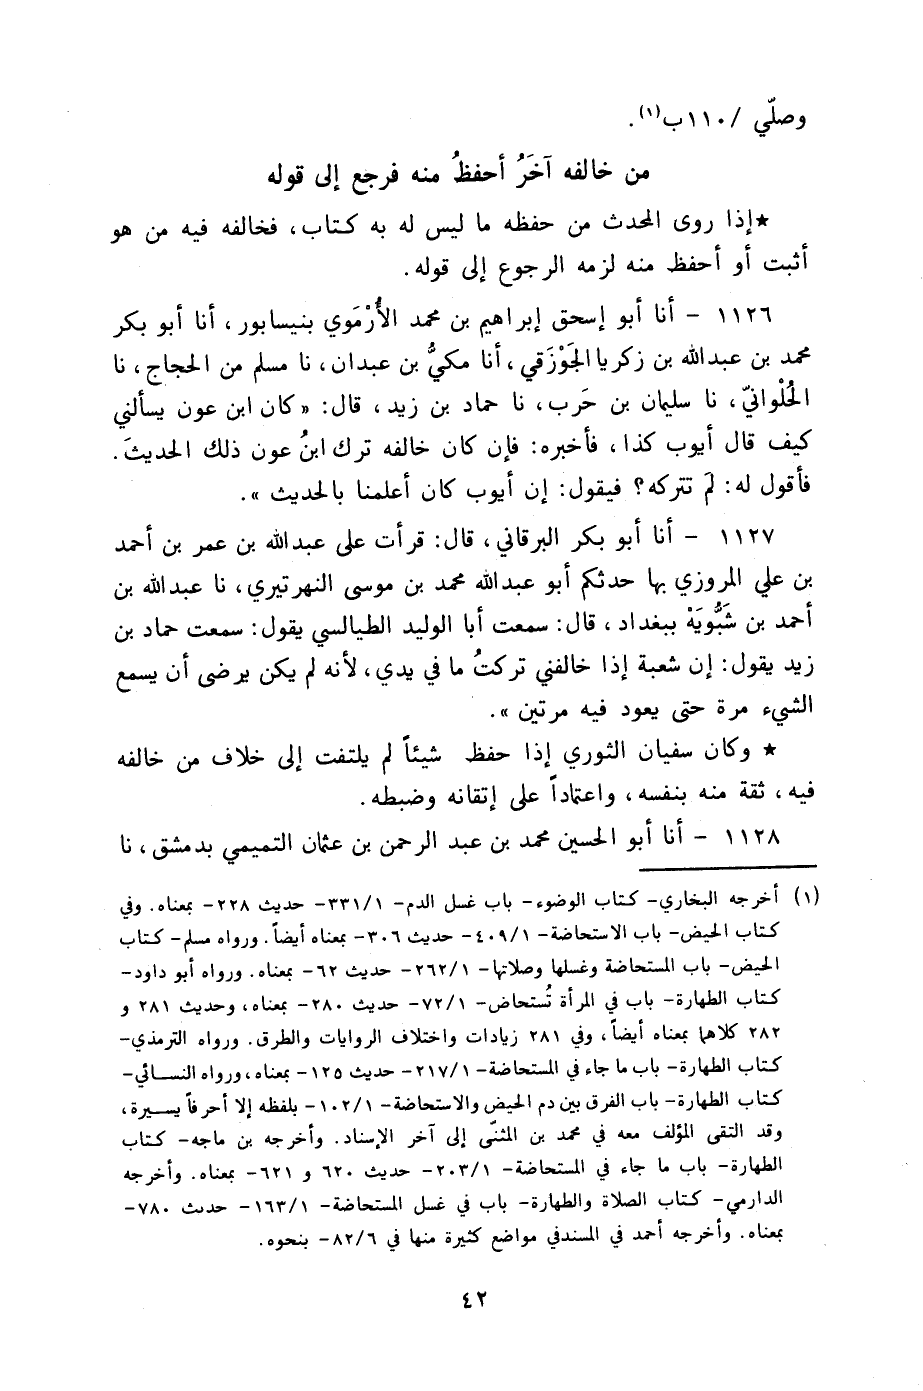 وصلّي /١١٠ب(١).
من خالفه آخَرُ أحفظُ منه فرجع إلى قوله
★إذا روى المحدث من حفظه ما ليس له به كتاب، فخالفه فيه من هو
أثبت أو أحفظ منه لزمه الرجوع إلى قوله.
١١٢٦ - أنا أبو إسحق إبراهيم بن محمد الأُرْمَوي بنيسابور، أنا أبو بكر
محمد بن عبدالله بن زكريا الجَوْزَقي، أنا مكيُّ بن عبدان، نا مسلم من الحجاج، نا
الحُلْوانيّ، نا سليمان بن حَرب، نا حماد بن زيد، قال: «كان ابن عون يسألني
كيف قال أيوب كذا، فأخبره: فإن كان خالفه ترك ابنُ عون ذلك الحديثَ.
فأقول له: لَم تتركه؟ فيقول: إن أيوب كان أعلمنا بالحديث».
١١٢٧ - أنا أبو بكر البرقاني، قال: قرأت على عبدالله بن عمر بن أحمد
بن علي المروزي بها حدثكم أبو عبدالله محمد بن موسى النهرتيري، نا عبدالله بن
أحمد بن شَبُّويَهْ ببغداد، قال: سمعت أبا الوليد الطيالسي يقول: سمعت حماد بن
زيد يقول: إن شعبة إذا خالفني تركتُ ما في يدي، لأنه لم يكن يرضى أن يسمع
الشيء مرة حتى يعود فيه مرتين».
★ وكان سفيان الثوري إذا حفظ شيئاً لم يلتفت إلى خلاف من خالفه
فيه، ثقة منه بنفسه، واعتماداً على إتقانه وضبطه.
١١٢٨ - أنا أبو الحسين محمد بن عبد الرحمن بن عثمان التميمي بدمشق، نا
(١) أخرجه البخاري- كتاب الوضوء- باب غسل الدم- ٣٣١/١- حديث ٢٢٨- بمعناه. وفي
كتاب الحيض- باب الاستحاضة- ٤٠٩/١- حديث ٣٠٦- بمعناه أيضاً. ورواه مسلم- كتاب
الحيض- باب المستحاضة وغسلها وصلاتها- ٢٦٢/١- حديث ٦٢- بمعناه. ورواه أبو داود-
كتاب الطهارة- باب في المرأة تُستحاض- ٧٢/١- حديث ٢٨٠- بمعناه، وحديث ٢٨١ و
٢٨٢ كلاهما بمعناه أيضاً، وفي ٢٨١ زيادات واختلاف الروايات والطرق. ورواه الترمذي-
كتاب الطهارة- باب ما جاء في المستحاضة- ٢١٧/١- حديث ١٢٥- بمعناه، ورواه النسائي-
كتاب الطهارة- باب الفرق بين دم الحيض والاستحاضة- ١٠٢/١- بلفظه إلا أحرفاً يسيرة،
وقد التقى المؤلف معه في محمد بن المثنّى إلى آخر الإسناد. وأخرجه بن ماجه- كتاب
الطهارة- باب ما جاء في المستحاضة- ٢٠٣/١- حديث ٦٢٠ و ٦٢١- بمعناه. وأخرجه
الدارمي- كتاب الصلاة والطهارة- باب في غسل المستحاضة- ١٦٣/١- حديث ٧٨٠-
بمعناه. وأخرجه أحمد في المسندفي مواضع كثيرة منها في ٨٢/٦- بنحوه.
٤٢